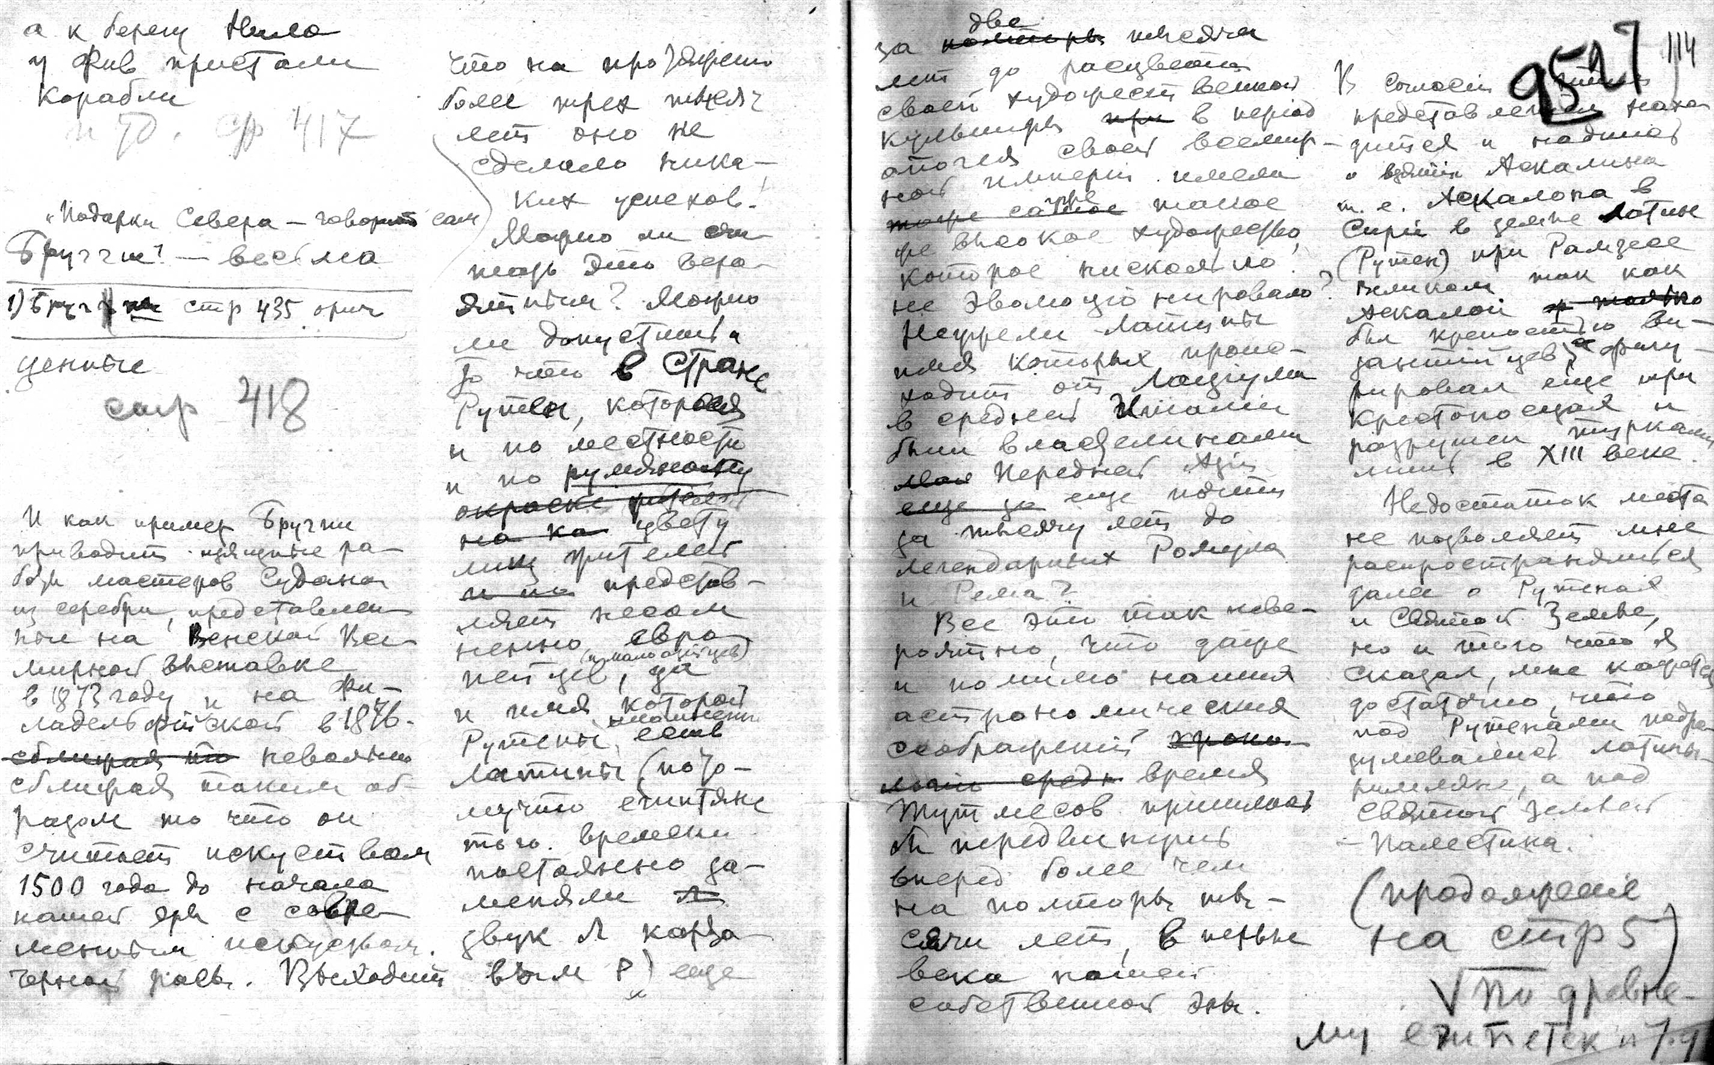 а к берегу Нила
у Фив пристали
корабли
стр 417
„Подарки Севера — говорит сам
Бругш! — весьма
1) Бругш стр 435 ориг
ценные
стр 418
И как пример Бругш
приводит изящные ра-
боты мастеров Судана
из серебра, представлен-
ные на Венской Все-
мирной выставке
в 1873 году и на Фи-
ладельфийской в 1876.
сближая то невольно
сближая таким об-
разом то что он
считает искуством
1500 года до начала
нашей эры с совре-
менным искуством
черной расы. Выходит
что на протяжении
более трех тысяч
лет оно не
сделало ника-
ких успехов!
Можно ли счи-
тать это веро-
ятным? Можно
ли допустить и
то что в стране
Рутен, которая
и по местности
и по румяному
окраске жителей
на ка цвету
лиц жителей
и по представ-
ляет несом
ненно евро
(и малоазийцев)
пейцев, да
и имя которой
Рутены, несомненно есть
латины (пото-
му что египтяне
того времени
постоянно за-
меняли Л
звук Л картавым
вым Р) еще
две
за полторы тысячи
лет до расцвета
своей художественной
культуры при в период
апогея своей всемир-
ной империи имела
тоже самое такое
же высокое художество,
которое нисколько
не эволюционировало?
Неужели латины
имя которых проис-
ходит от Лациума
в средней Италии
были властелинами
Передней Азии
еще за еще почти
за тысячу лет до
легендарных Ромула
и Рема?
Все это так неве-
роятно, что даже
и помимо наших
астрономических
соображений хроно-
время
Тутмесов пришлось
б передвинуть
вперед более чем
на полторы ты-
сячи лет, в первые
века нашей
собственной эры.
9527
114
В согласии с этим
представлением нахо
дится и надпись
о взятии Аскалина
т. е. Аскалона в
Сирии в земле Латине
(Рутен) при Рамзесе
Великом так как
Аскалон и только
был крепостью ви-
зантийцев и фигу-
рировал еще при
Крестоносцах и
разрушен турками
лишь в XIII веке.
Недостаток места
не позволяет мне
распространяться
далее о Рутенах
и Святой Земле,
но и того что я
сказал, мне кажется
достаточно, что
под Рутенами подра-
зумевались латины-
римляне, а под
Святой Землей
— Палестина.
(продолжение
на стр 5)
√ по древне-
му египетск